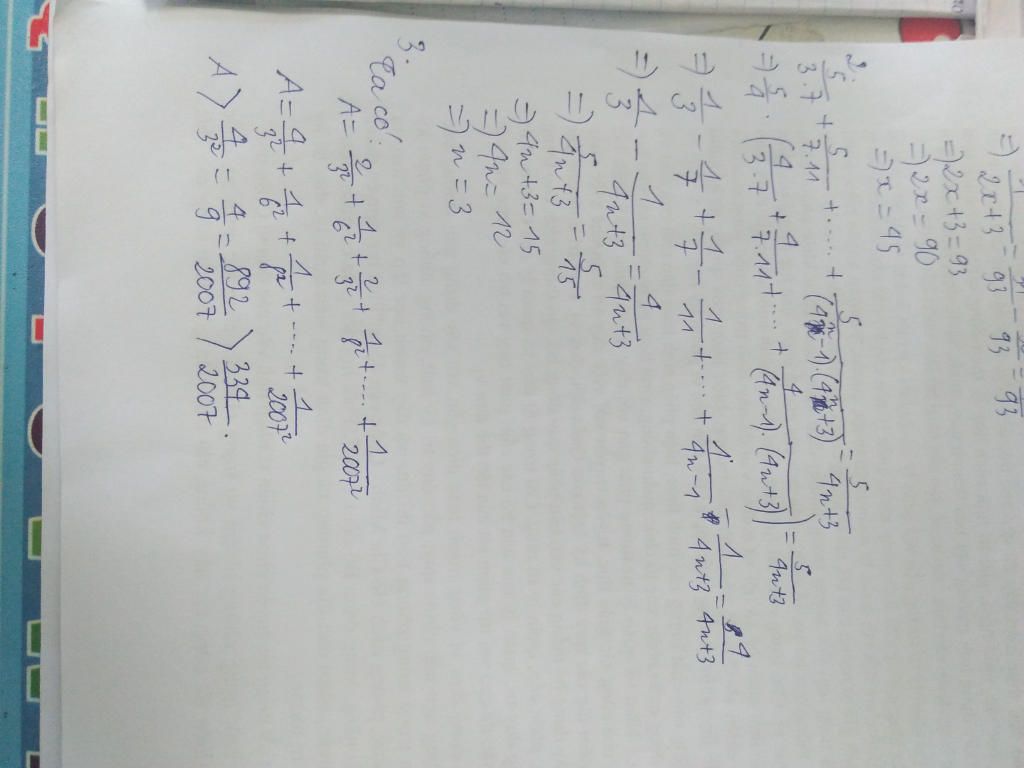 =) 1/(2x+3) = /93 - /93 = /93
=) 2x+3=93
=) 2x=90
=) x=45
2. 5/3.7 + 5/7.11 + ..... + 5/(4n-1).(4n+3) = 5/4n+3
=) 5/4 . (4/3.7 + 4/7.11 + .... + 4/(4n-1).(4n+3)) = 5/4n+3
=) 1/3 - 1/7 + 1/7 - 1/11 + .... + 1/4n-1 - 1/4n+3 = 4/4n+3
=) 1/3 - 1/4n+3 = 4/4n+3
=) 5/4n+3 = 5/15
=) 4n+3=15
=) 4n=12
=) n=3
3. Ta có:
A= 2/3² + 1/6² + 2/3² + 1/8² + .... + 1/2007²
A= 4/3² + 1/6² + 1/8² + .... + 1/2007²
A > 4/3² = 4/9 = 892/2007 > 334/2007.